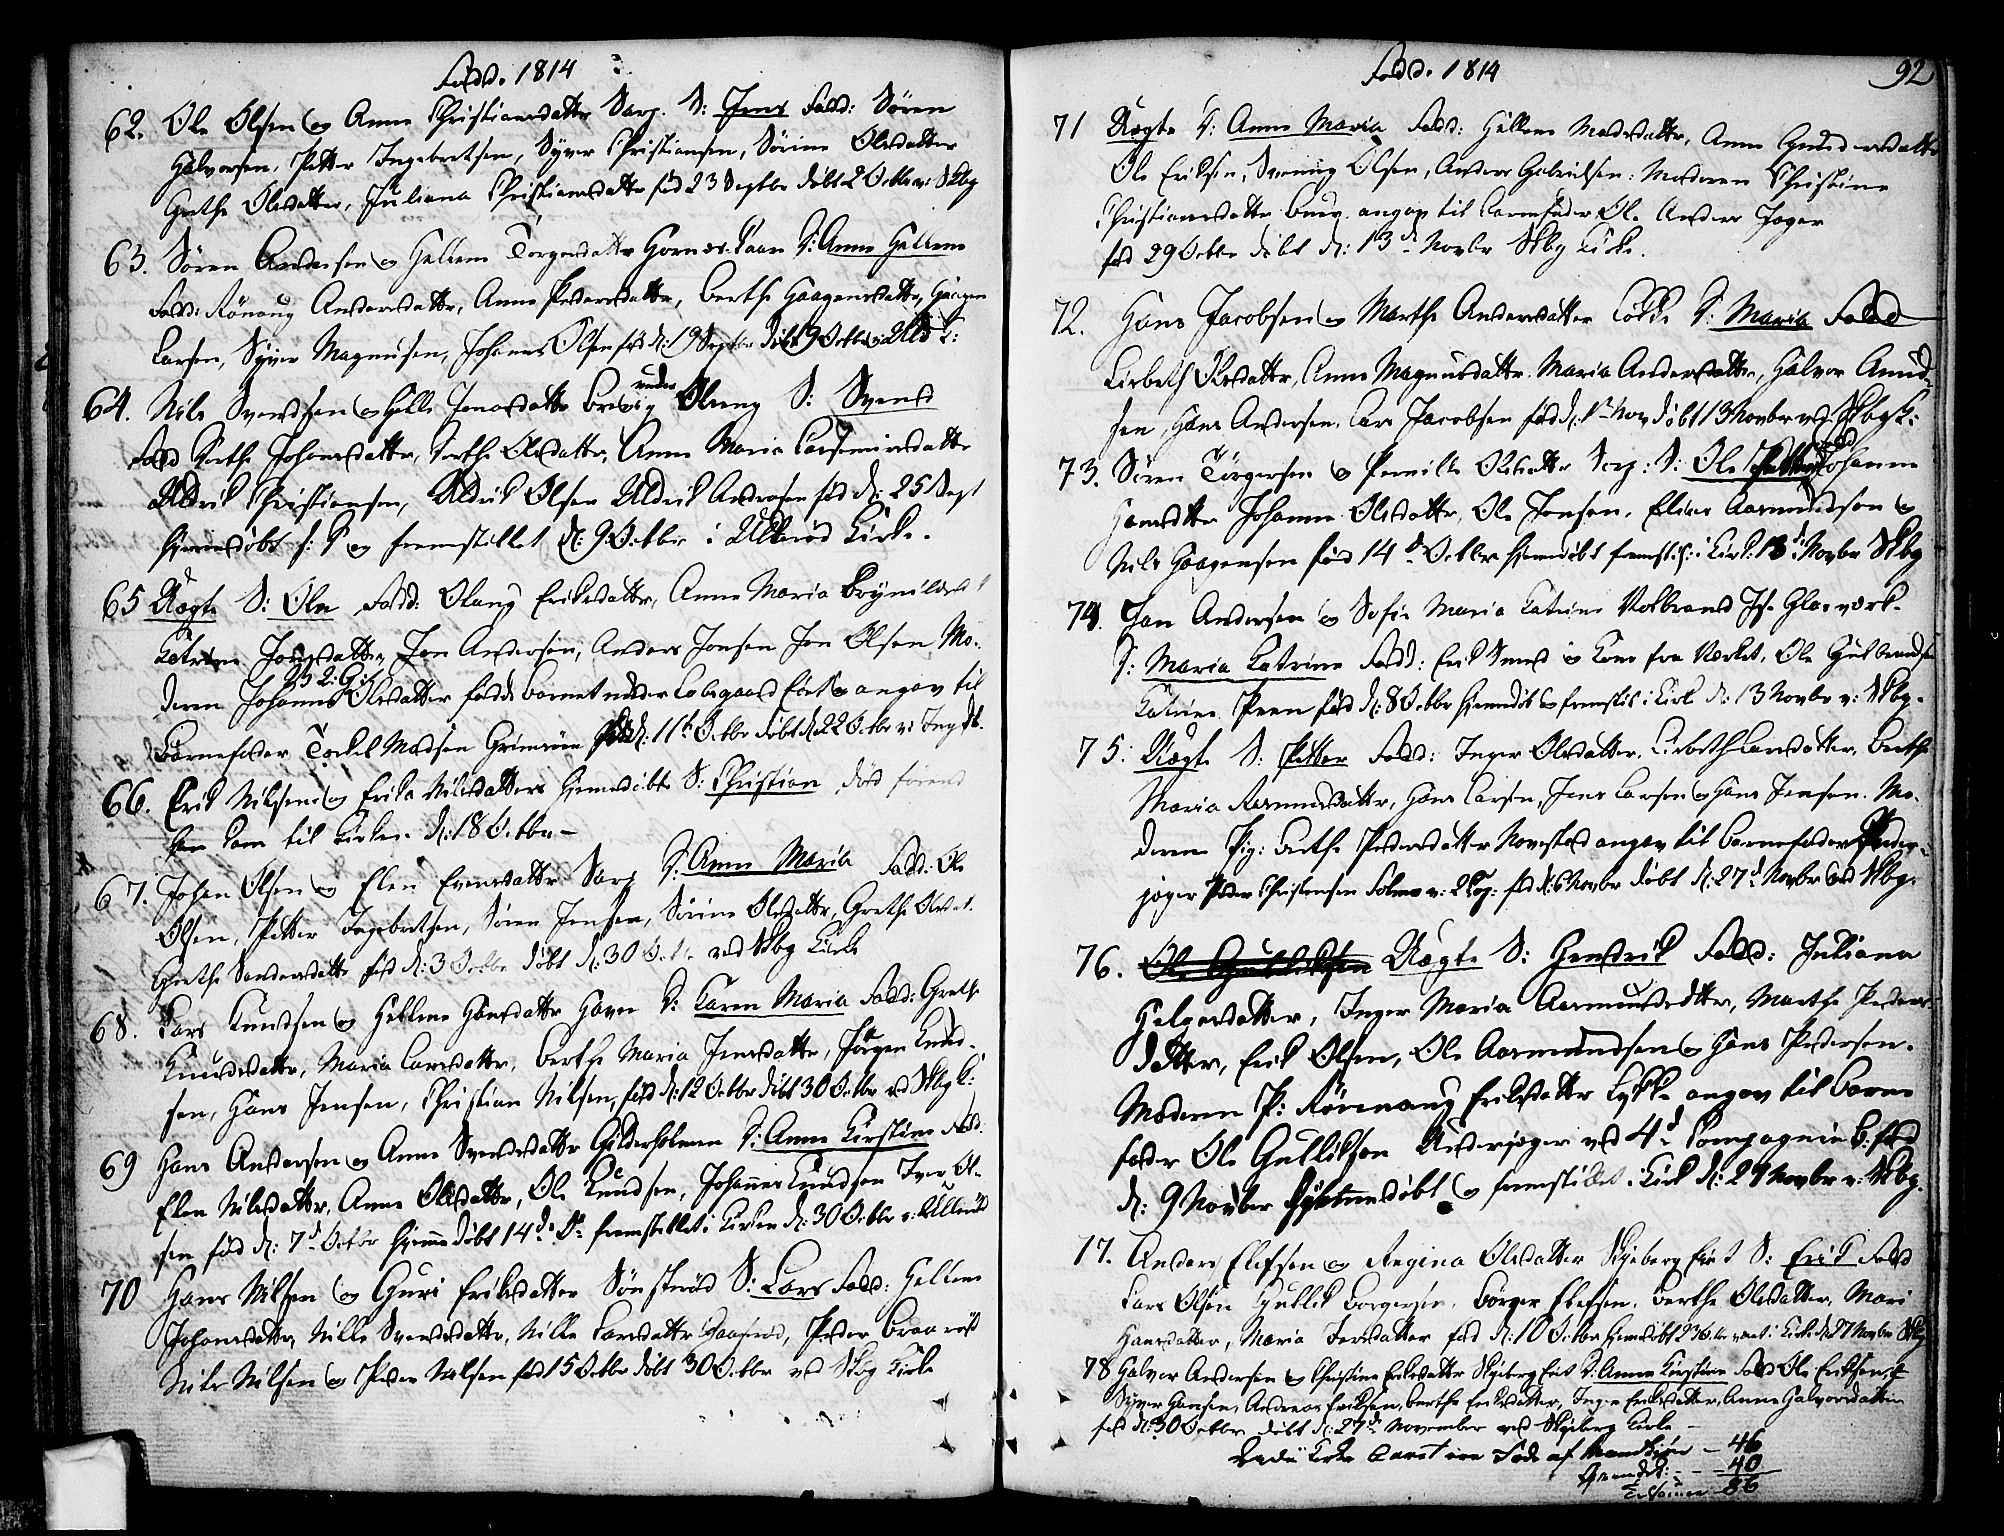 Fødd. 1814
62. Ole Olsen og Anne Christiansdatter Sarp. S: Jens Fadd: Søren
Halvorsen, Petter Ingebretsen, Syver Christiansen, Sørine Olsdatter
Grethe Olsdatter, Juliana Christiansdatter fød 23 Septbr døbt 2 Octbr v: Skbg
63. Søren Andersen og Hellene Torgersdatter Hornes: Saan S: Anne Hellene
Fadd: Rønnaug Andersdatter, Anne Pedersdatter, Berthe Haagensdatter, Haagen
Larsen, Syver Magnusen, Johannes Olsen fød d: 19 Septbr døbt 9 Octbr v: Ullr K:
64. Nils Svendsen og Helle Jonasdatter under Olseng S: Svend
Fadd Berthe Johansdatter, Berthe Olsdatter, Anne Maria Casemirsdatter
Uldrik Christiansen, Uldrik Olsen Uldrik Andersen fød d: 25 Sept
hjemedøbt s: D og fremstillet d: 9 Octbr i Ullerød Kirke.
65 Uægte S: Ole Fadd: Olaug Eriksdatter, Anne Maria Brynildsdt
Katrine Jonsdatter, Jon Andersen, Anders Jonsen Jon Olsen Mo-
deren Johanne Olsdatter fødde barnet under Labogaard først og angav til
Barnefader Torkel Madsen Grimsøen fød d: 11te Octbr døbt d. 22 Octbr v: Ingdb.
66. Erik Nilsens og Erika Nilsdatters hjemedøbte S: Christian død førend
han kom til Kirken d: 18 Octbr –
67. Johan Olsen og Elen Evensdatter Sarp S: Anne Maria Fadd: Ole
Olsen, Petter Ingebretsen, Søren Jensen, Sørine Olsdatter, Grethe Olsdat.
Grethe Sandersdatter fød d: 3 Octbr døbt d: 30 Octbr ved Skbg Kirke
68. Lars Knudsen og Hellene Hansdatter Havn S: Karen Maria Fadd: Grethe
Knudsdatter, Maria Larsdatter, Berthe Maria Jensdatter, Jørgen Knud-
sen, Hans Jensen, Christian Nilsen, fød d: 12 Octbr døbt 30 Octbr ved Skbg K:
69 Hans Andersen og Anne Svendsdatter Gilderholmen S: Anne Kirstine Fadd.
Elen Nilsdatter, Anne Olsdatter, Ole Knudsen, Johannes Knudsen Iver Ol-
sen fød d: 7d Octbr hjemmedøbt 14de Ds fremstillet i Kirken d: 30 Octbr v: Ullerød
70 Hans Nilsen og Guri Eriksdatter Sønsterød S: Lars Fadd: Hellene
Johansdatter, Nille Svendsdatter, Nille Larsdatter, Peder
Nils Nilsen og Peder Nilsen fød 15 Octbr døbt 30 Octbr ved Skbg Kirke
Fødd. 1814 92
71 Uægte S: Anne Maria Fadd: Hellene Madsdatter, Anne Gundersdatter
Ole Eriksen, Svening Olsen, Anders Gabrielsen: Moderen Christine
Christiansdatter Burg. angav til barnefader Ole Anders Jæger
fød 29 Octbr døbt d: 13d Novbr Skbg Kirke.
72. Hans Jacobsen og Marthe Andersdatter Løkke S: Maria Fadd
Lisbeth Olsdatter, Anne Magnusdatter Maria Andersdatter, Halvor Amund-
sen, Hans Andersen, Lars Jacobsen fød d: 1ste Nov døbt 13 Novbr ved Skbg K:
73. Søren Torgersen og Pernille Olsdatter Sarp: S: Ole Fadd Johanne
Hansdtter Johanne Olsdatter, Ole Jonsen, Elias Aasmundsen og
Nils Haagensen fød 14d Octbr hjemdøbt fremstil: i Kirk: 13d Novbr Skbg
74. Jan Andersen og Sofie Maria Katrine Volbrand Js: Glasværk
S: Maria Katrine Fadd: Erik Smed og Kone fra Værket, Ole Gulbrandsen
Katrine Peen fød d: 8 Octbr hjemdøbt og fremstil i Kirk d: 13 Novbr v: Skbg.
75: Uægt S: Petter Fadd: Inger Olsdatter, Lisbeth Larsdatter, Berthe
Maria Rasmusdatter, Hans Larsen, Jens Larsen og Hans Jensen. Mo-
deren Pig: Berthe Pedersdatter Navestad angav til barnefader
jæger Peder Christensen v: 2 Cop: fød d: 6 Novbr døbt d: 27d Novbr ved Skbg.
76. Ole Gulliksen Uægte S: Hendrik Fadd: Juliana
Helgesdatter, Inger Maria Aasmundsdtter, Marthe Peders
datter, Erik Olsen, Ole Aasmundsen og Hans Pedersen.
Moderen P: Rønnaug Eriksdatter Lykke angav til Barne
fader Ole Gulliksen Underjæger ved 4d Compagnie b: fød
d: 9 Novber hjemmedøbt og fremstillet i Kirk d: 27 Novbr v: Skbg.
77. Anders Elefsen og Regina Olsdatter Skjeberg Eiet S: Erik Fadd
Lars Olsen Gullik Borgersen, Børger Elefsen, Berthe Olsdatter, Mari
Hansdatter, Maria Jensdatter fød d: 10 Octbr hjemdøbt 23 været i Kirk d 27 Novbr Skbg
78 Halvor Andersen og Christine Eriksdatter Skjeberg Eiet S: Anne Kirstine Fadd Ole Eriksen
Syver Hansen, Andreas Eriksen, Berthe Eriksdatter, Inger Eriksdatter, Anne Halvorsdatter
fød d: 30 Octbr døbt d: 27de November ved Skjeberg Kirke –
af Mandkjøn – 46
Qvindek: – – 40
Tilsammen 86